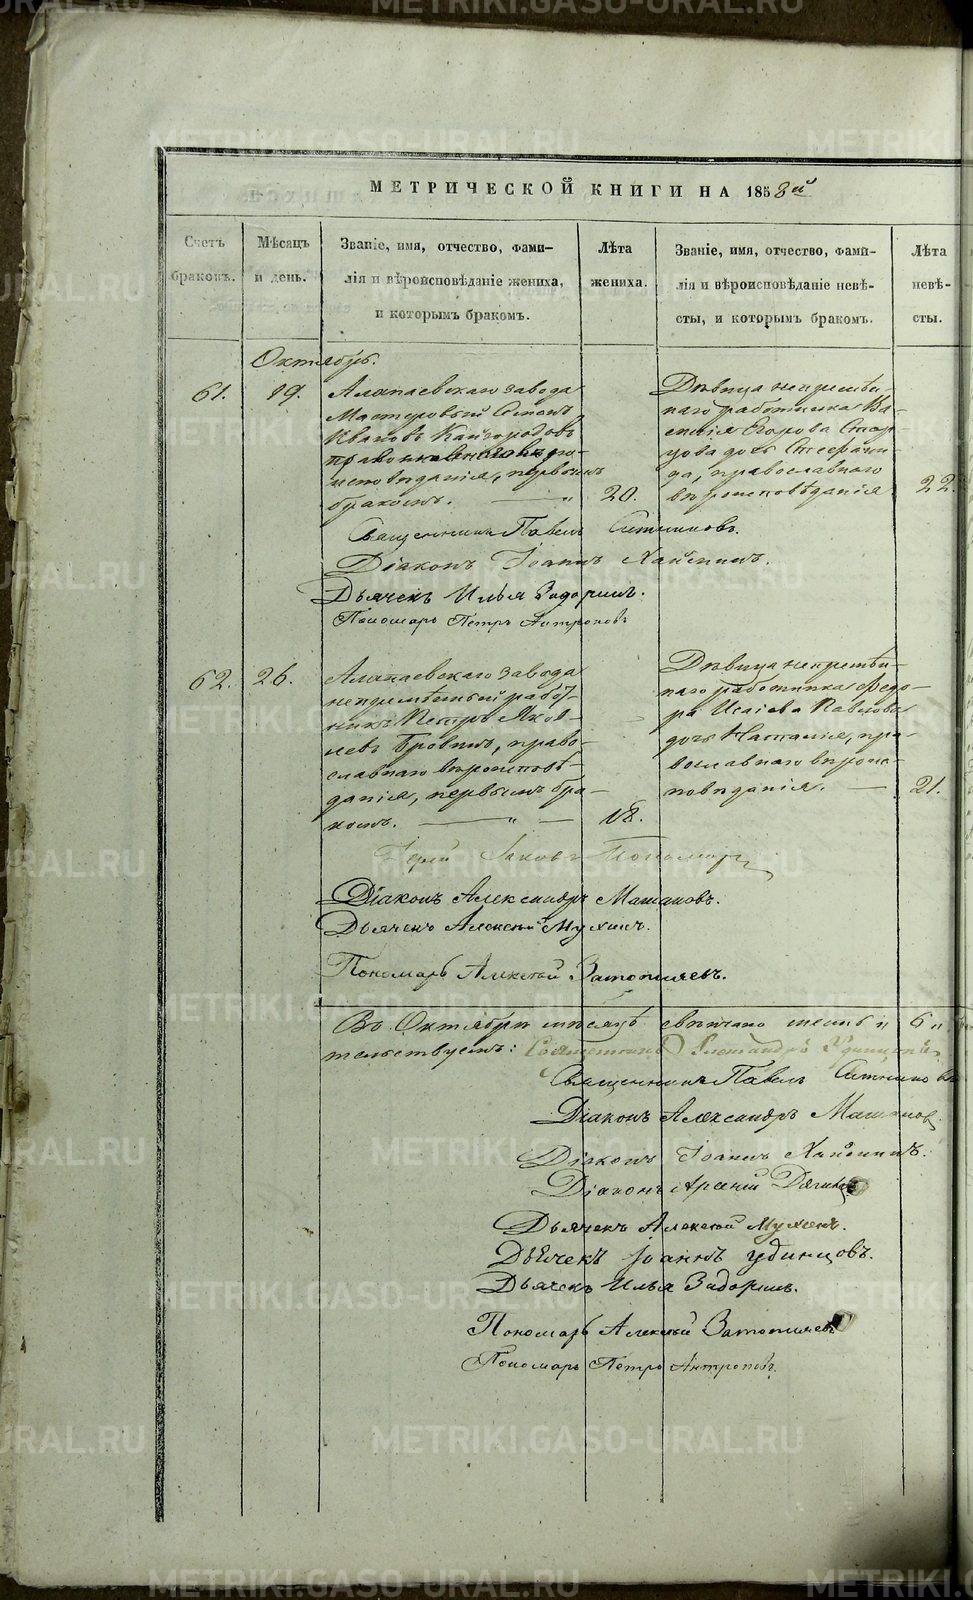 МЕТРИЧЕСКОЙ КНИГИ НА 1858й
Счетъ браковъ.
Мѣсяцъ и день.
Званіе, имя, отчество, фами-
лія и вѣроисповѣданіе жениха,
и которымъ бракомъ.
Лѣта жениха.
Званіе, имя, отчество, фами-
лія и вѣроисповѣданіе невѣ-
сты, и которымъ бракомъ.
Лѣта невѣ-
сты.
Октябрь.
61.
19.
Алапаевскаго завода
Мастеровый Семенъ
Ивановъ Кайгородовъ
исповѣданія, первымъ
бракомъ.
20.
Дѣвица непремѣн-
наго работника Ва-
силія Егорова Стар-
цова дочь
да, православнаго
вѣроисповѣданія
22.
Священникъ Павелъ Ситниковъ.
Діаконъ Іоаннъ
Дьячекъ Илья Задоринъ.
Пономарь Петръ Антроповъ
62.
26.
Алапаевскаго завода
непремѣнный работ-
никъ Петръ Яков-
левъ право-
славнаго вѣроисповѣ-
данія, первымъ бра-
комъ.
18.
Дѣвица непремѣн-
наго работника Ѳедо-
ра Исаіева Павлова
дочь Наталія, пра-
вославнаго вѣроис-
повѣданія.
21.
Іерей Іаковъ Пономарев
Діаконъ Александръ Машановъ.
Дьячекъ Алексей Мухинъ.
Пономарь Алексѣй Затопляевъ.
Въ Октябрѣ мѣсяцѣ свѣнчано шесть 6
тельствуемъ: Священникъ Александръ
Священникъ Павелъ Ситниковъ
Діаконъ Александръ Машановъ
Діаконъ Іоаннъ
Діаконъ Арсеній
Дьячекъ Алексѣй Мухинъ.
Дьячекъ Іоаннъ Удинцовъ.
Дьячекъ Илья Задоринъ.
Пономарь Алексѣй Затопляевъ
Пономарь Петръ Антроповъ.
METRIKI.GASO-URAL.RU